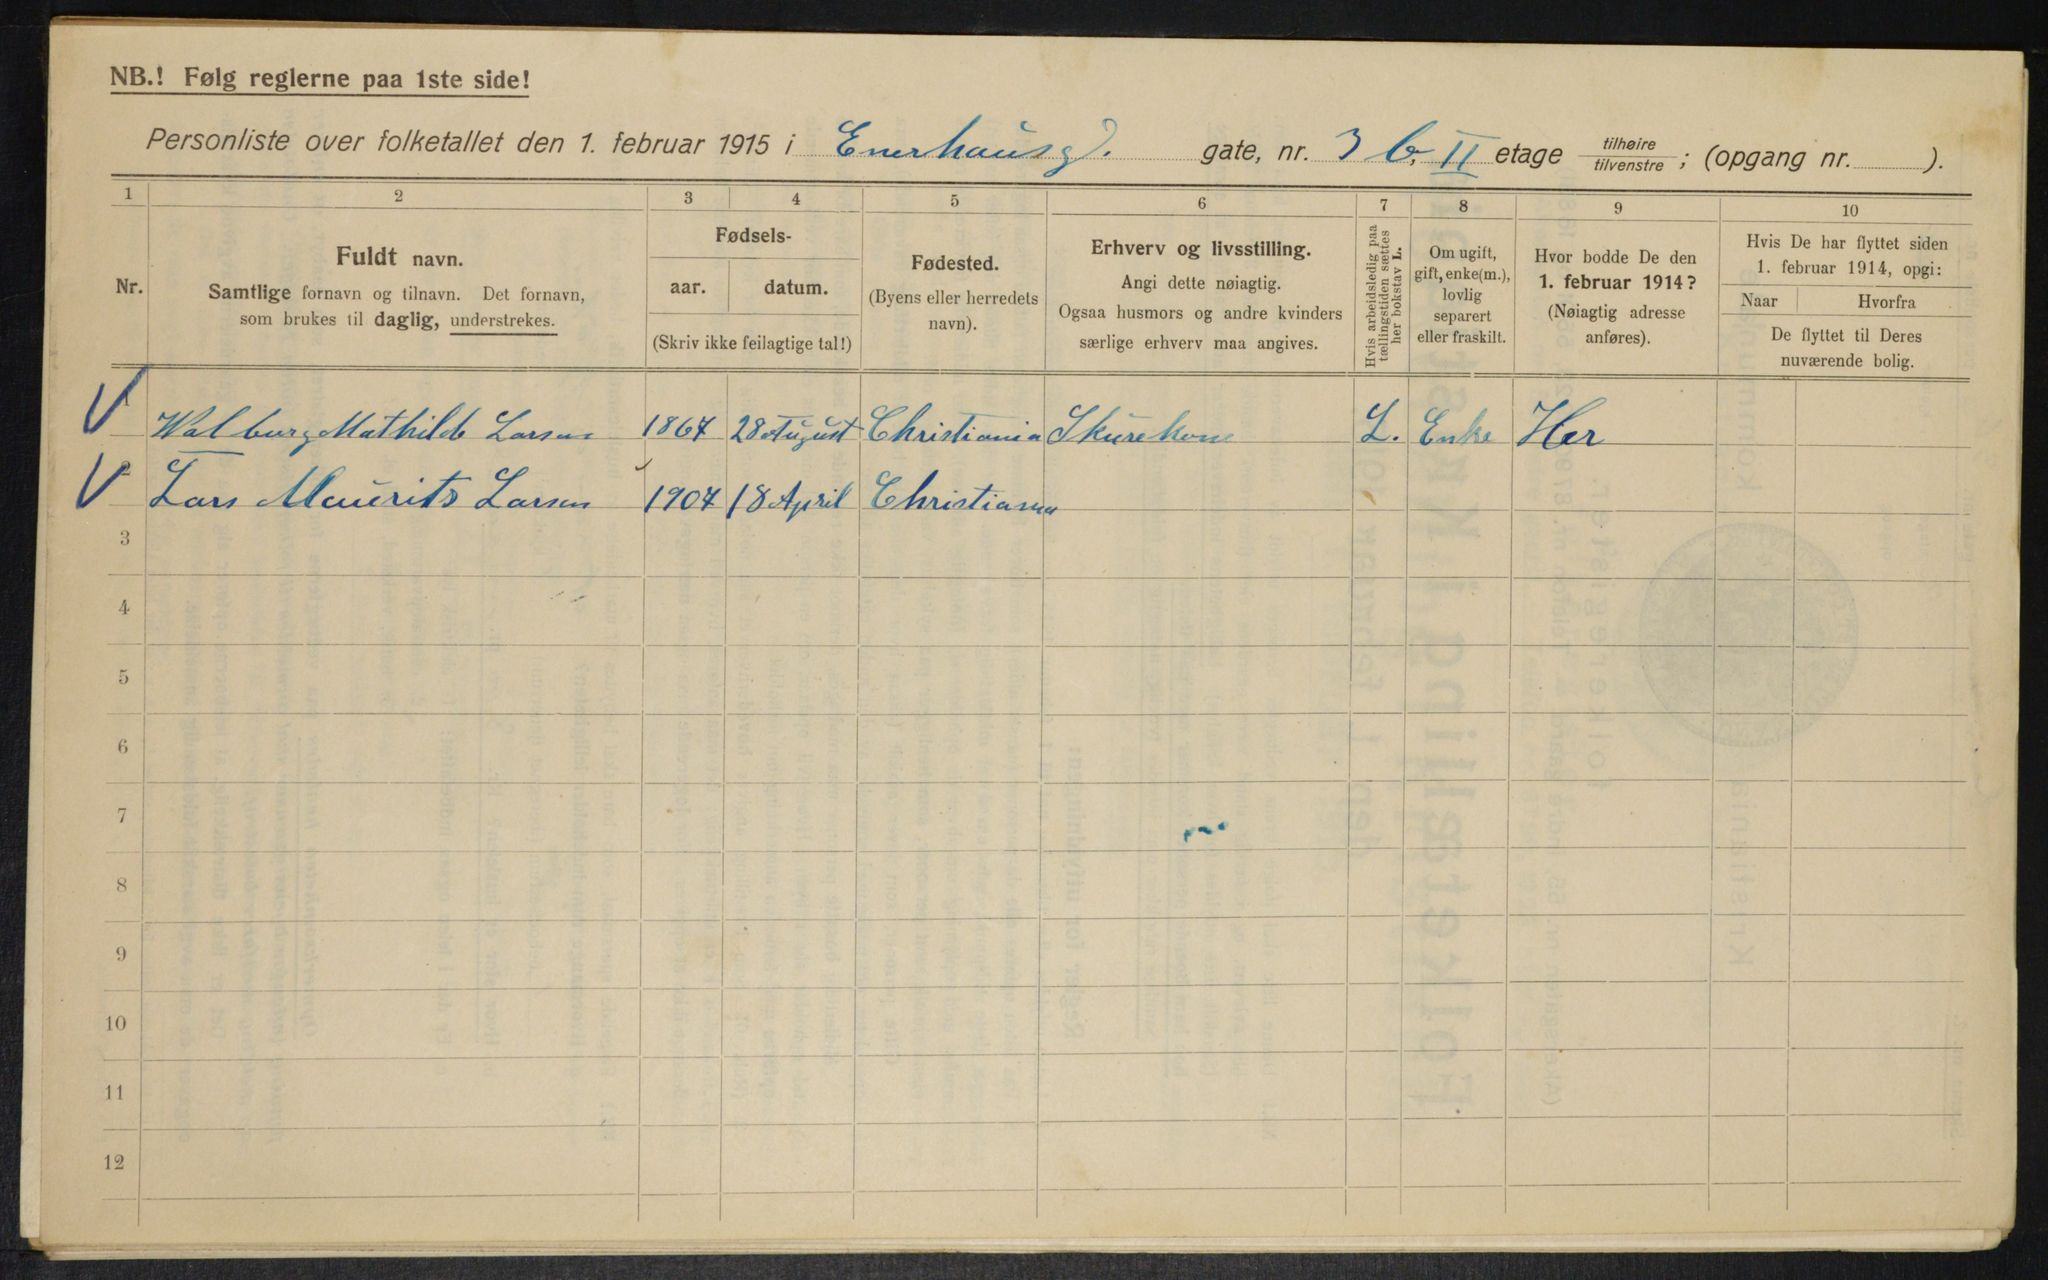 NB.! Følg reglerne paa 1ste side!
Personliste over folketallet den 1. februar 1915 i Enerhausg. gate, nr. 3 b, II etage tilhøire / tilvenstre ; (opgang nr. ).
1 2 3 4 5 6 7 8 9 10
Nr.
Fuldt navn.
Samtlige fornavn og tilnavn. Det fornavn,
som brukes til daglig, understrekes.
Fødsels-
aar. datum.
(Skriv ikke feilagtige tal!)
Fødested.
(Byens eller herredets
navn).
Erhverv og livsstilling.
Angi dette nøiagtig.
Ogsaa husmors og andre kvinders
særlige erhverv maa angives.
Hvis arbeidsledig paa
tællingstiden sættes
her bokstav L.
Om ugift,
gift, enke(m.),
lovlig
separert
eller fraskilt.
Hvor bodde De den
1. februar 1914?
(Nøiagtig adresse
anføres).
Hvis De har flyttet siden
1. februar 1914, opgi:
Naar Hvorfra
De flyttet til Deres
nuværende bolig.
1 Walburg Mathilde Larsen 1867 28 August Christiania Skurekone L. Enke Her
2 Lars Maurits Larsen 1907 18 April Christiania
3
4
5
6
7
8
9
10
11
12